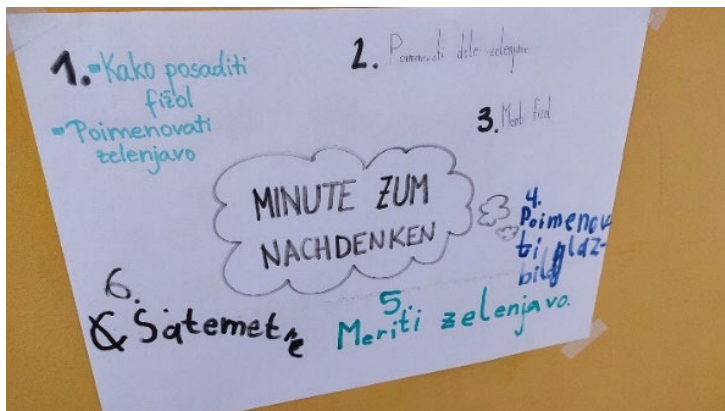 1. - Kako posaditi
fižol
- Poimenovati
zelenjavo
2. Poimenovati dele zelenjave
3. Meriti fižol
MINUTE ZUM
NACHDENKEN
4.
Poimenov
ti glaz-
bila
5.
Meriti zelenjavo.
6.
& Šatemetre